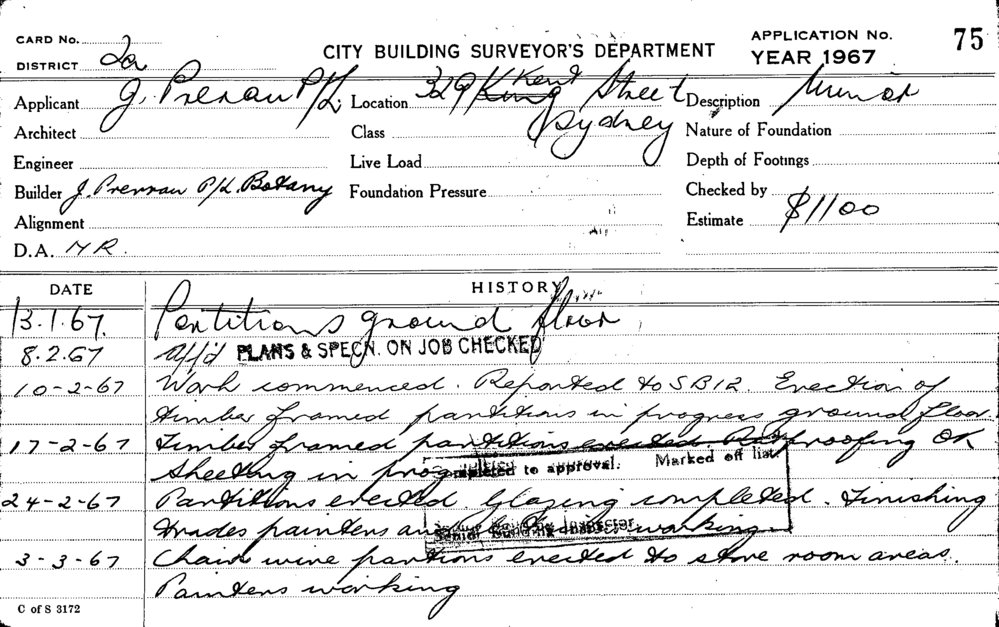 CARD No.
DISTRICT 2a
CITY BUILDING SURVEYOR'S DEPARTMENT
APPLICATION No. 75
YEAR 1967
Applicant J. Prenau P/L. Location 329 King Kent Street Sydney Description Minor
Architect Class Nature of Foundation
Engineer Live Load Depth of Footings
Builder J. Prenau P/L. Botany Foundation Pressure Checked by
Alignment Estimate $1100
D.A. NR.
DATE HISTORY
13.1.67. Partitions ground floor
8.2.67 PLANS & SPECN. ON JOB CHECKED
10-2-67 Work commenced. Reported to SBIR. Erection of
timber framed partitions in progress ground floor.
17-2-67 Timber framed partitions erected proofing OK
sheeting in
Completed to approval. Marked off list
24-2-67 Partitions erected. Glazing completed. Finishing
trades painters working
Senior Building Inspector
3-3-67 Chain wire partions erected to store room areas.
Painters working
C of S 3172